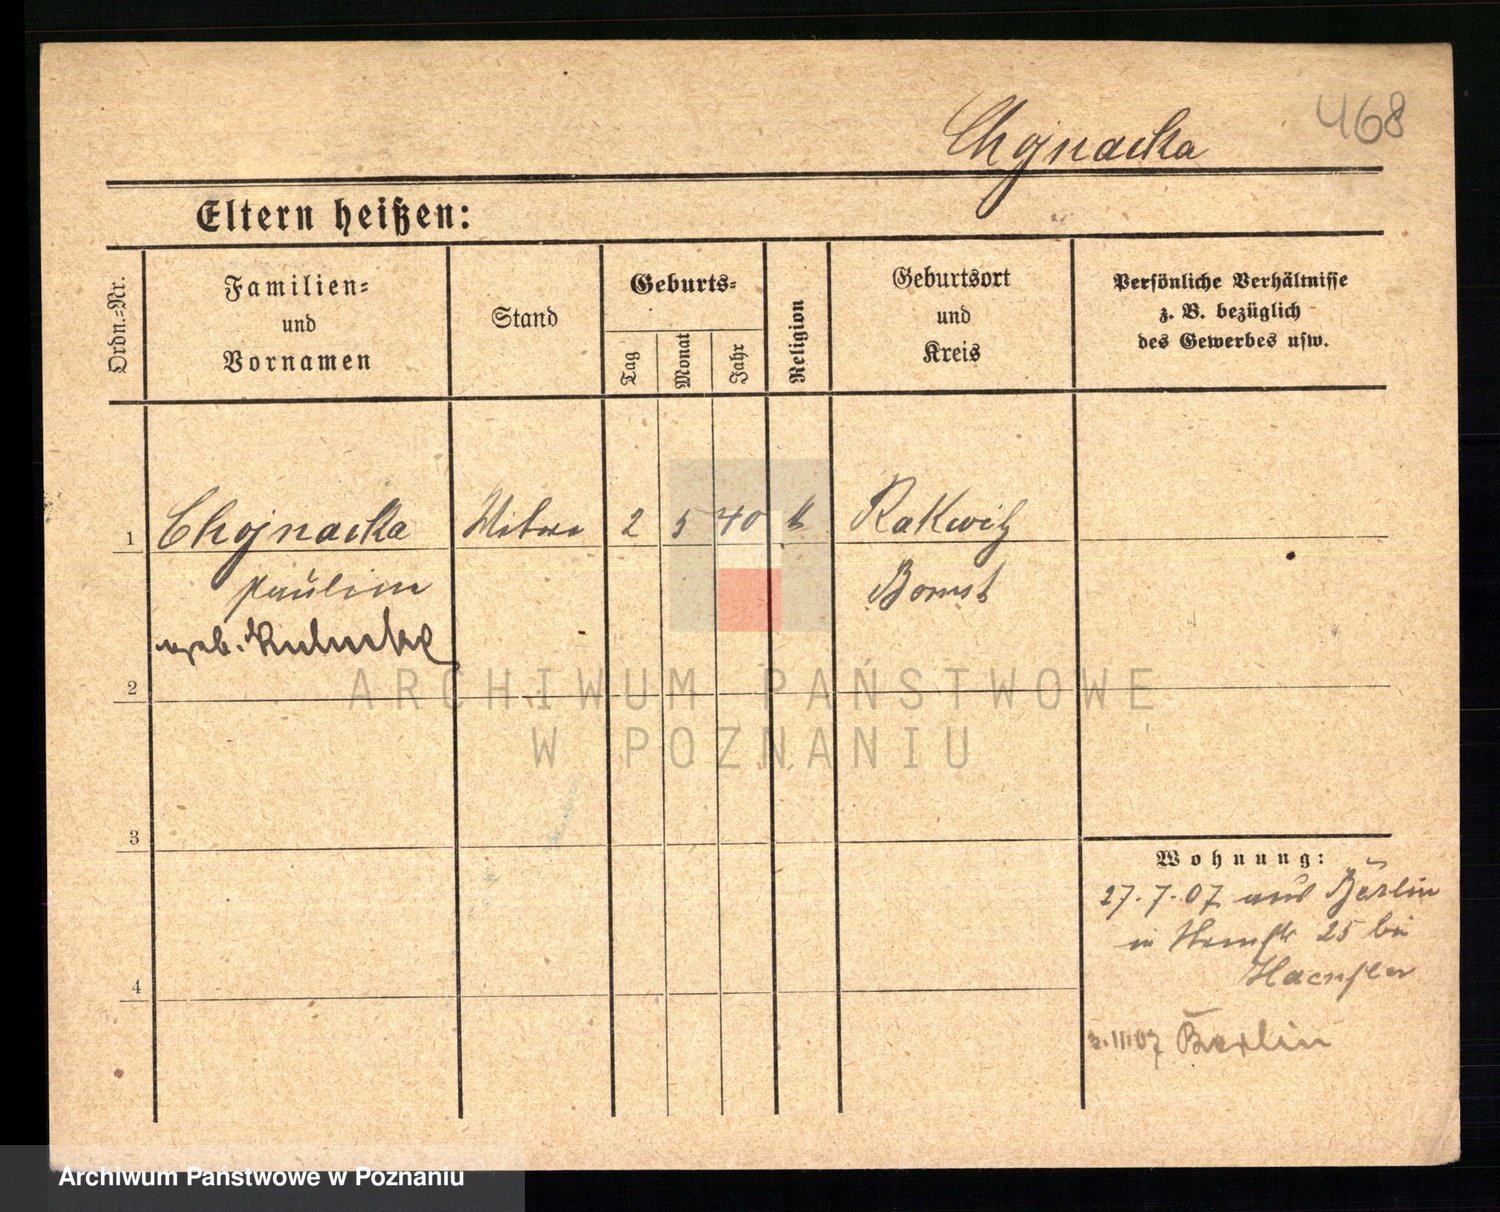 468
Chojnacka
Eltern heißen:
Ordn.-Nr.
Familien-
und
Vornamen
Stand
Geburts-
Tag
Monat
Jahr
Religion
Geburtsort
und
Kreis
Persönliche Verhältnisse
z. B. bezüglich
des Gewerbes usw.
1 Chojnacka Witwe 2 5 40 k Rakwitz
Paulina Bomst
geb.
2
3
4
ARCHIWUM PAŃSTWOWE
W POZNANIU
Wohnung:
27.7.07 aus Berlin
25 bei
Haensler
07 Berlin
Archiwum Państwowe w Poznaniu